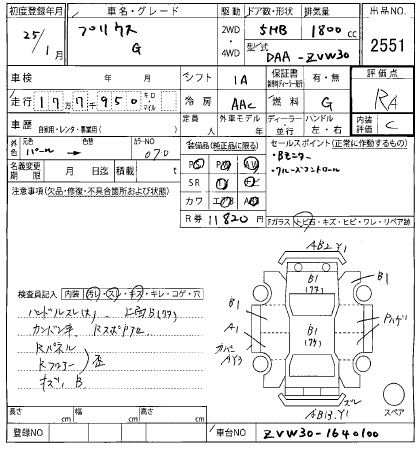 初度登録年月 車名・グレード 駆動 ドア数・形状 排気量 出品NO.
25/1月 プリウス G 2WD・4WD 5HB 1800cc 2551
型式 DAA-ZVW30
車検 年 月 シフト IA 保証書 有・無 評価点
走行 177千950 キロ・マイル 冷房 AAC 燃料 G RA
車歴 自家用・レンタ・事業用( ) 定員 人 外車モデル 年 ディーラー・並行 ハンドル 左・右 内装評価 C
外色 元色 パール → 色替 カラーNO 070
装備品(純正品に限る) セールスポイント(正常に作動するもの)
PS PW AW ・Bモニター
・クルーズコントロール
名義変更期限 月 日迄 積載 t SR
注意事項(欠品・修復・不具合箇所および状態) カワ エアB
R券 11820円 Fガラス トビ石・キズ・ヒビ・ワレ・リペア跡
AB2.Y1
検査員記入 内装 汚レ・スレ・キズ・キレ・コゲ・穴
ハンドルスレ(大)
Rパネル
歪
B1 B1 B1
A1 B1
AY3
スペア
AB13.Y1
長さ cm 幅 cm 高さ cm
登録NO 車台NO ZVW30-1640100